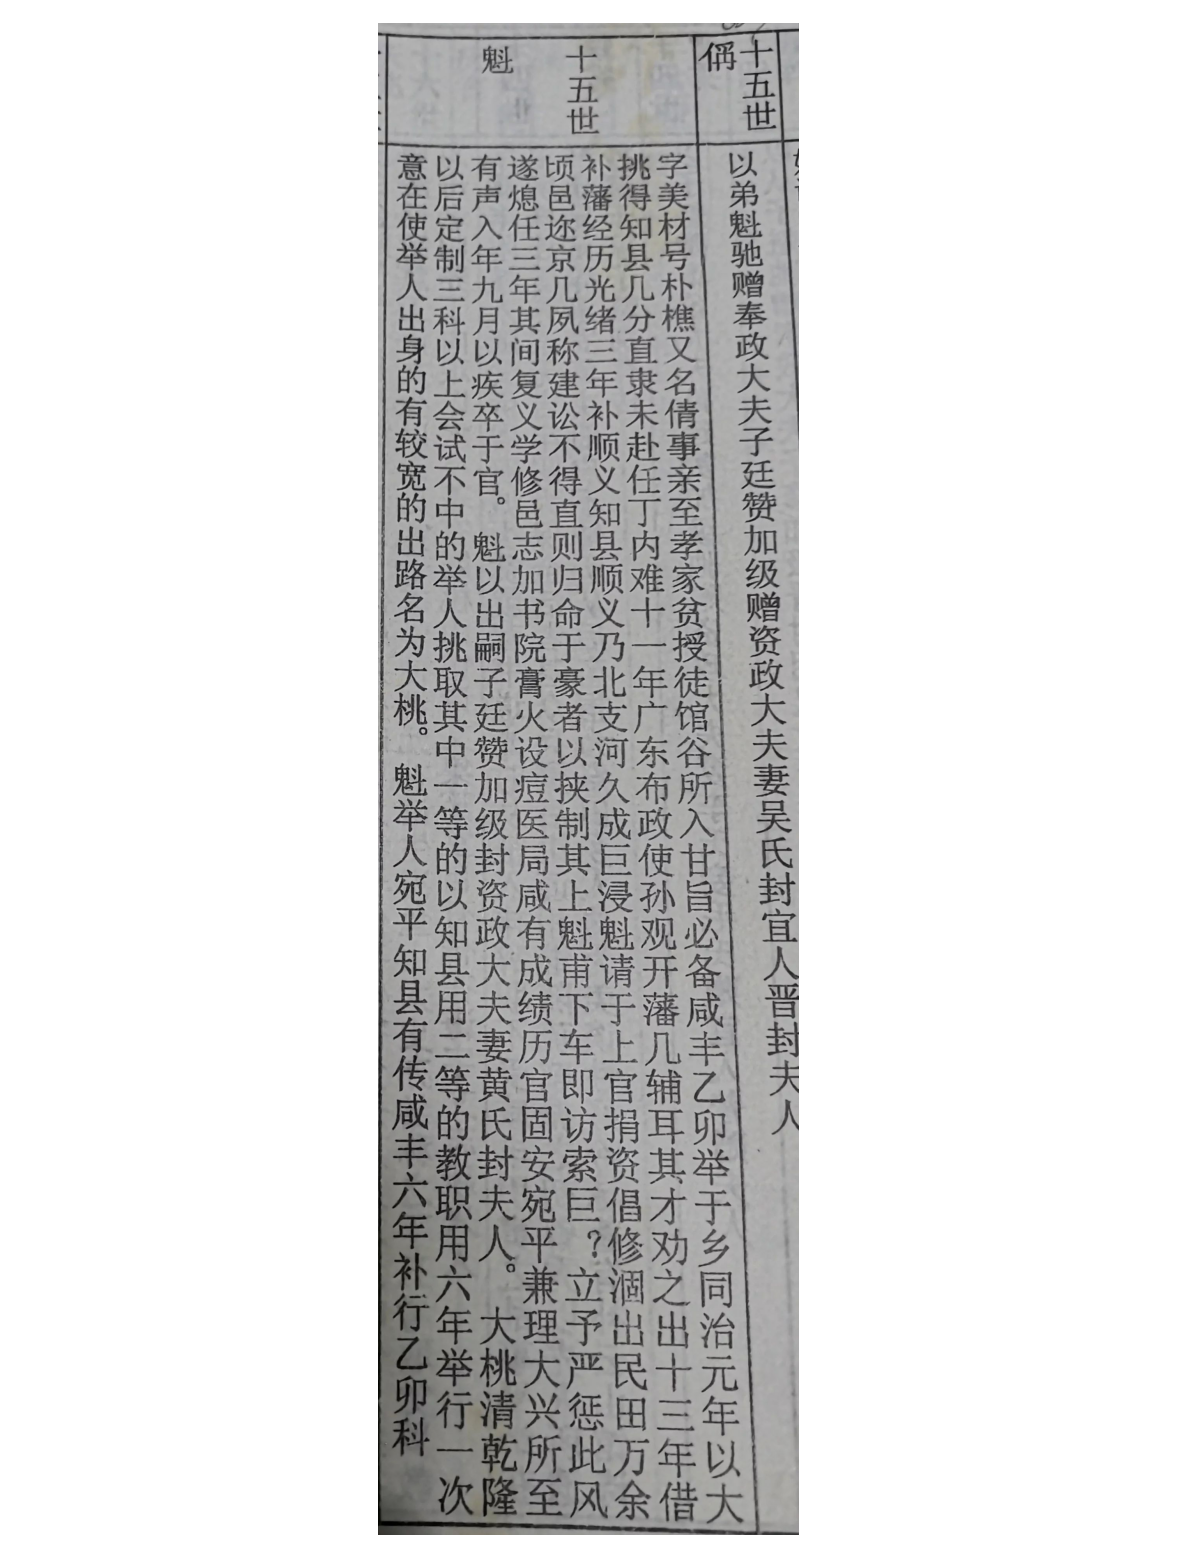 十五世
偁
以弟魁驰赠奉政大夫子廷赞加级赠资政大夫妻吴氏封宜人晋封夫人
十五世
魁
字美材号朴樵又名倩事亲至孝家贫授徒馆谷所入甘旨必备咸丰乙卯举于乡同治元年以大
挑得知县几分直隶未赴任丁内难十一年广东布政使孙观开藩几辅耳其才劝之出十三年借
补藩经历光绪三年补顺义知县顺义乃北支河久成巨浸魁请于上官捐资倡修涸出民田万余
顷邑迩京几夙称建讼不得直则归命于豪者以挟制其上魁甫下车即访索巨？立予严惩此风
遂熄任三年其间复义学修邑志加书院膏火设痘医局咸有成绩历官固安宛平兼理大兴所至
有声入年九月以疾卒于官。魁以出嗣子廷赞加级封资政大夫妻黄氏封夫人。大桃清乾隆
以后定制三科以上会试不中的举人挑取其中一等的以知县用二等的教职用六年举行一次
意在使举人出身的有较宽的出路名为大桃。魁举人宛平知县有传咸丰六年补行乙卯科